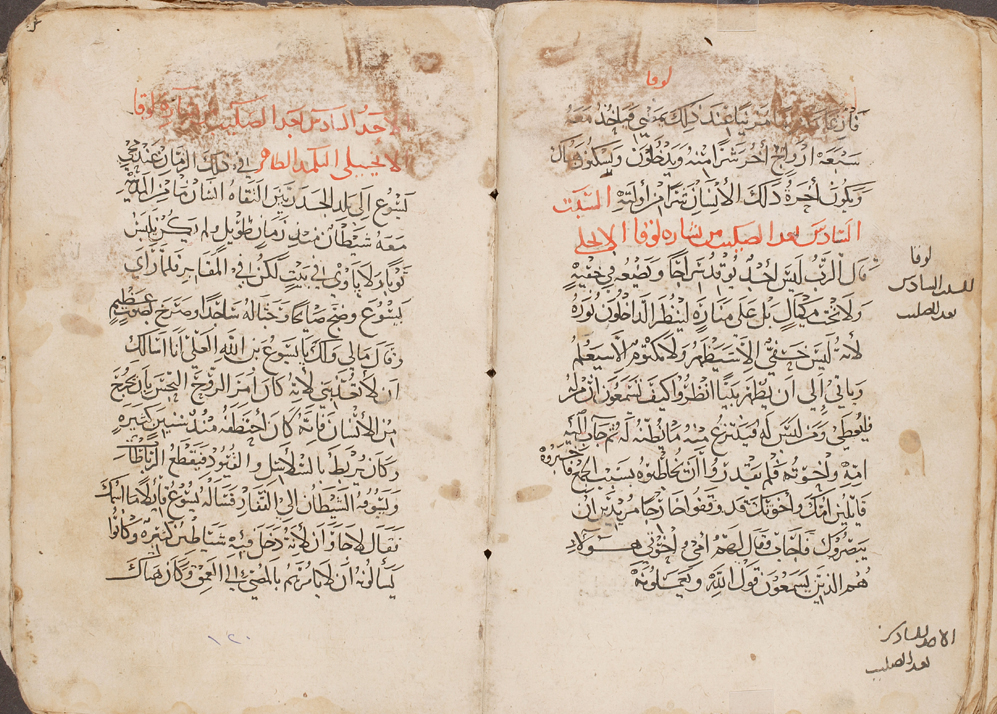 لوقا
ذلك يمضي فياخذ معه
سبعة ارواح اخر شرا منه ويدخلون ويسكون هناك
ويكون اخرة ذلك الانسان شرا من اولته السبت
السادس بعد الصليب من بشاره لوقا الانجلي
قال الرب ليس احد يوقد سراجا ويضعه في خفيه
ولا تحت مكيال بل على مناره لينظر الداخلون نوره
لانه ليس خفي الا سيظهر ولا مكتوم الا سيعلم
وياتي الى ان يظهر بينا انظروا كيف تسمعون
فليعطى ومن ليس له فينتزع منه ما يظنه له ثم جات اليه
امه واخوته فلم يقدروا ان يخاطبوه بسبب الجمع فاخبروه
قايلين امك واخوتك قد وقفوا خارجا مريدين ان
يبصروك فاجاب وقال لهم امي واخوتي هولاد
هم الذين يسمعون قول الله ويعملونه
لوقا
للسبت السادس
بعد الصليب
الاحد السادس
بعد الصليب
الاحد السادس بعد الصليب بشارة لوقا
الانجيلي التلميد الطاهر في ذلك الزمان عند مجي
يسوع الى بلد الجرجسيين التقاه انسان ما من المدينه
معه شيطان منذ زمان طويل ولم يكن يلبس
ثوبا ولا ياوي الى بيت لكن في المقابر فلما راي
يسوع وضج صايحا وخر له ساجدا وصرخ بصوت عظيم
وقال مالي ولك يا يسوع بن الله العلي انا اسالك
ان لا تعذبني لانه كان امر الروح النجس بان يخرج
من الانسان فانه كان اختطفه منذ سنين كثيره
وكان يربط بالسلاسل والقيود فيقطع الرباطات
ويسوقه الشيطان الى القفار فساله يسوع قايلا ما اسمك
فقال لاجاون لانه دخل فيه شياطين كثيره وكانوا
يسالونه ان لا يامرهم بالمضي الى العمق وكان هناك
١٢٠